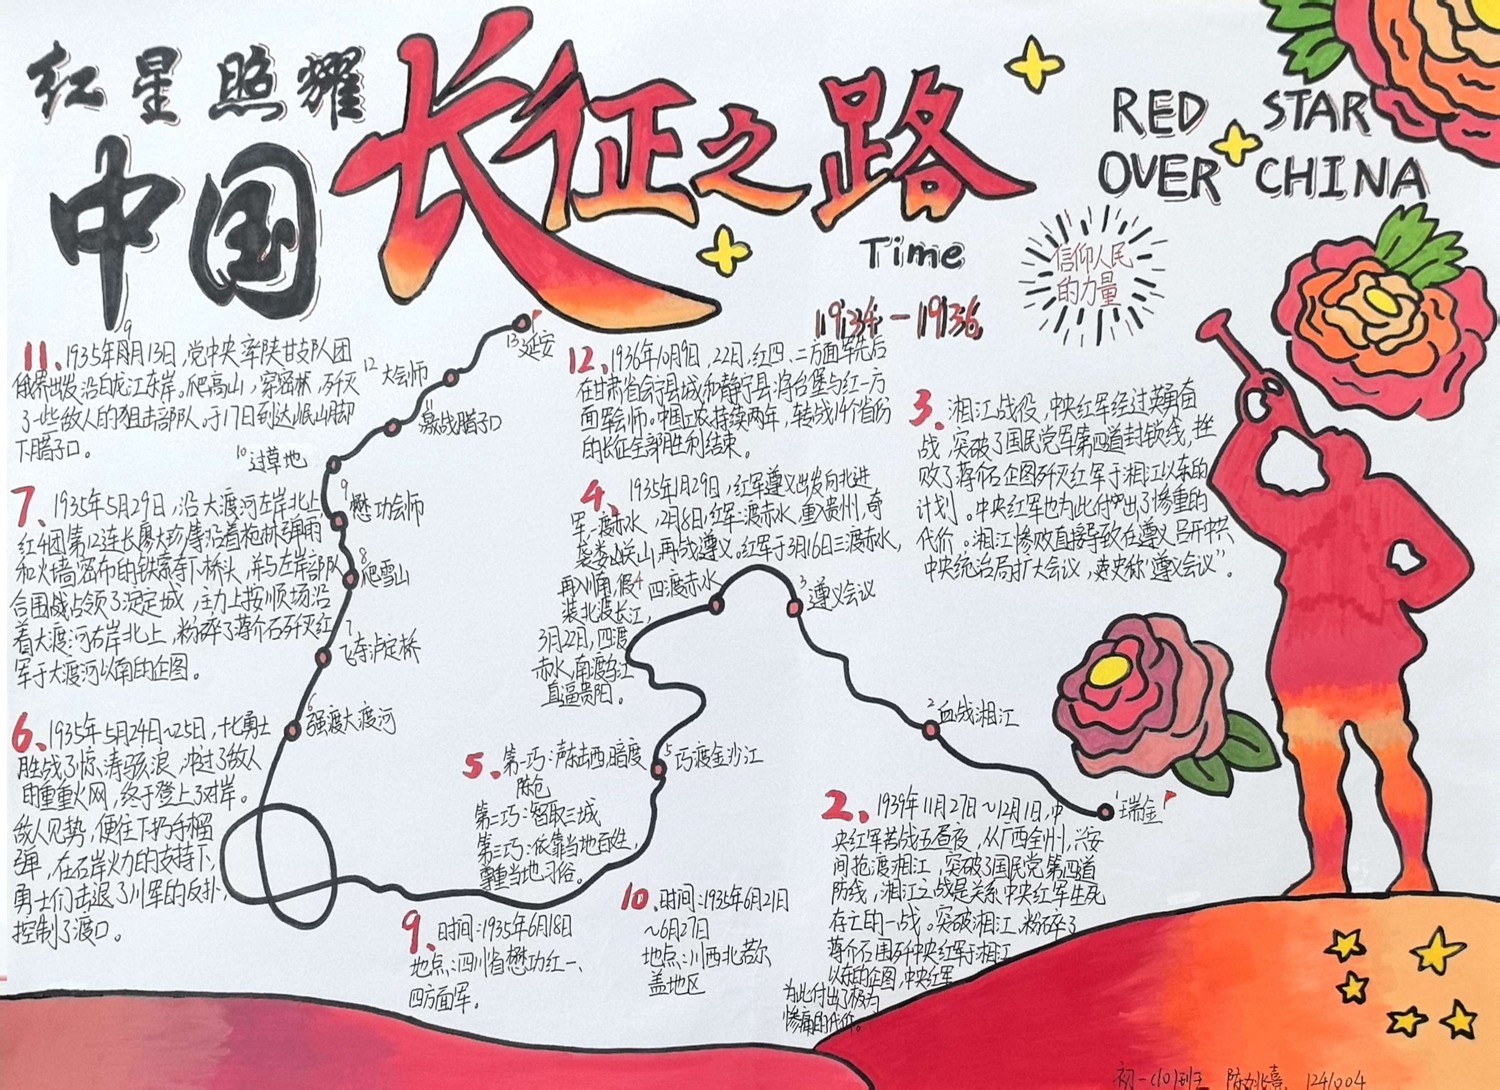 红星照耀
中国
长征之路
RED STAR
OVER CHINA
Time
1934-1936
信仰人民
的力量
11、1935年9月13日,党中央率陕甘支队团
俄界出发沿白龙江东岸。爬高山,穿密林,歼灭
了一些敌人的狙击部队,于17日到达岷山脚
下腊子口。
7、1935年5月29日,沿大渡河左岸北上
红4团第12连长廖大珍等沿着枪林弹雨
和火墙密布的铁索夺下桥头,并与左岸部队
合围战占领了泸定城,主力上按顺场沿
着大渡河右岸北上,粉碎了蒋介石歼灭红
军于大渡河以南的企图。
6、1935年5月24日~25日,十七勇士
胜战了惊涛骇浪,冲过了敌人
重重火网,终于登上了对岸。
敌人见势,便往下扔手榴
弹,在右岸火力的支持下,
勇士们击退了川军的反扑,
控制了渡口。
13延安
12大会师
11激战腊子口
10过草地
9懋功会师
8爬雪山
7飞夺泸定桥
6强渡大渡河
12、1936年10月9日,22日,红四、二方面军先后
在甘肃省会宁县城和静宁县将台堡与红一方
面军会师。中国工农持续两年,转战14个省份
的长征全部胜利结束。
4、1935年1月29日,红军遵义出发向北进
军,一渡赤水,2月8日,红军二渡赤水,重入贵州,奇
袭娄山关,再战遵义。红军于3月16日三渡赤水,
再入川南,假
装北渡长江,
3月22日,四渡
赤水,南渡乌江
直逼贵阳。
4四渡赤水
3遵义会议
2血战湘江
1瑞金
5巧渡金沙江
5、第一巧:声东击西,暗度
陈仓
第二巧:智取三城
第三巧:依靠当地百姓,
尊重当地习俗。
3、湘江战役,中央红军经过英勇奋
战,突破了国民党军第四道封锁线,挫
败了蒋介石企图歼灭红军于湘江以东的
计划。中央红军也为此付出了惨重的
代价。湘江惨败直接导致在遵义召开中共
中央统治局扩大会议,史称“遵义会议”。
2、1939年11月27日~12月1日,中
央红军苦战五昼夜,从广西全州,兴安
间抢渡湘江,突破了国民党第四道
防线,湘江之战是关系中央红军生死
存亡的一战。突破湘江,粉碎了
蒋介石围歼中央红军于湘江
以东的企图,中央红军
为此付出了极为
惨痛的代价。
9、时间:1935年6月18日
地点:四川省懋功红一、
四方面军。
10、时间:1935年6月21日
~6月27日
地点:川西北若尔
盖地区
初一(10)班 1241004